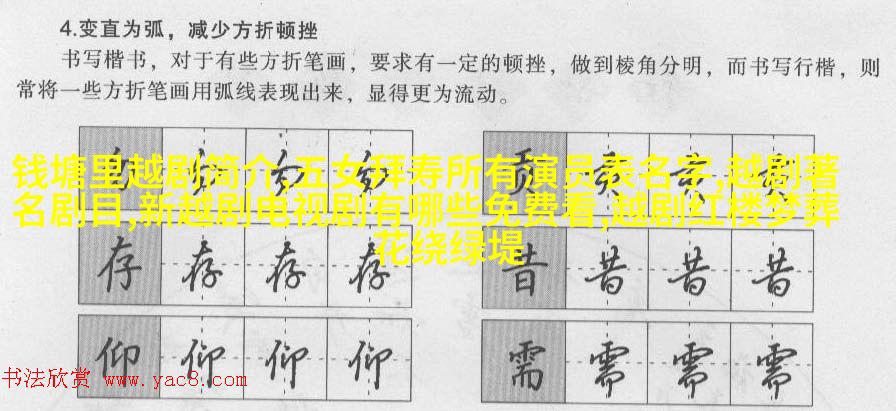 4.变直为弧，减少方折顿挫
书写楷书，对于有些方折笔画，要求有一定的顿挫，做到棱角分明，而书写行楷，则
常将一些方折笔画用弧线表现出来，显得更为流动。
钱塘里越剧简介,五女拜寿所有演员表名字,越剧著
名剧目,新越剧电视剧有哪些免费看,越剧红楼梦葬
花绕绿堤
贡 贡 贡 贡
存 存 存 存
昔 昔 昔 昔
仰 仰 仰 仰
需 需 需 需
书法欣赏 www.yac8.com